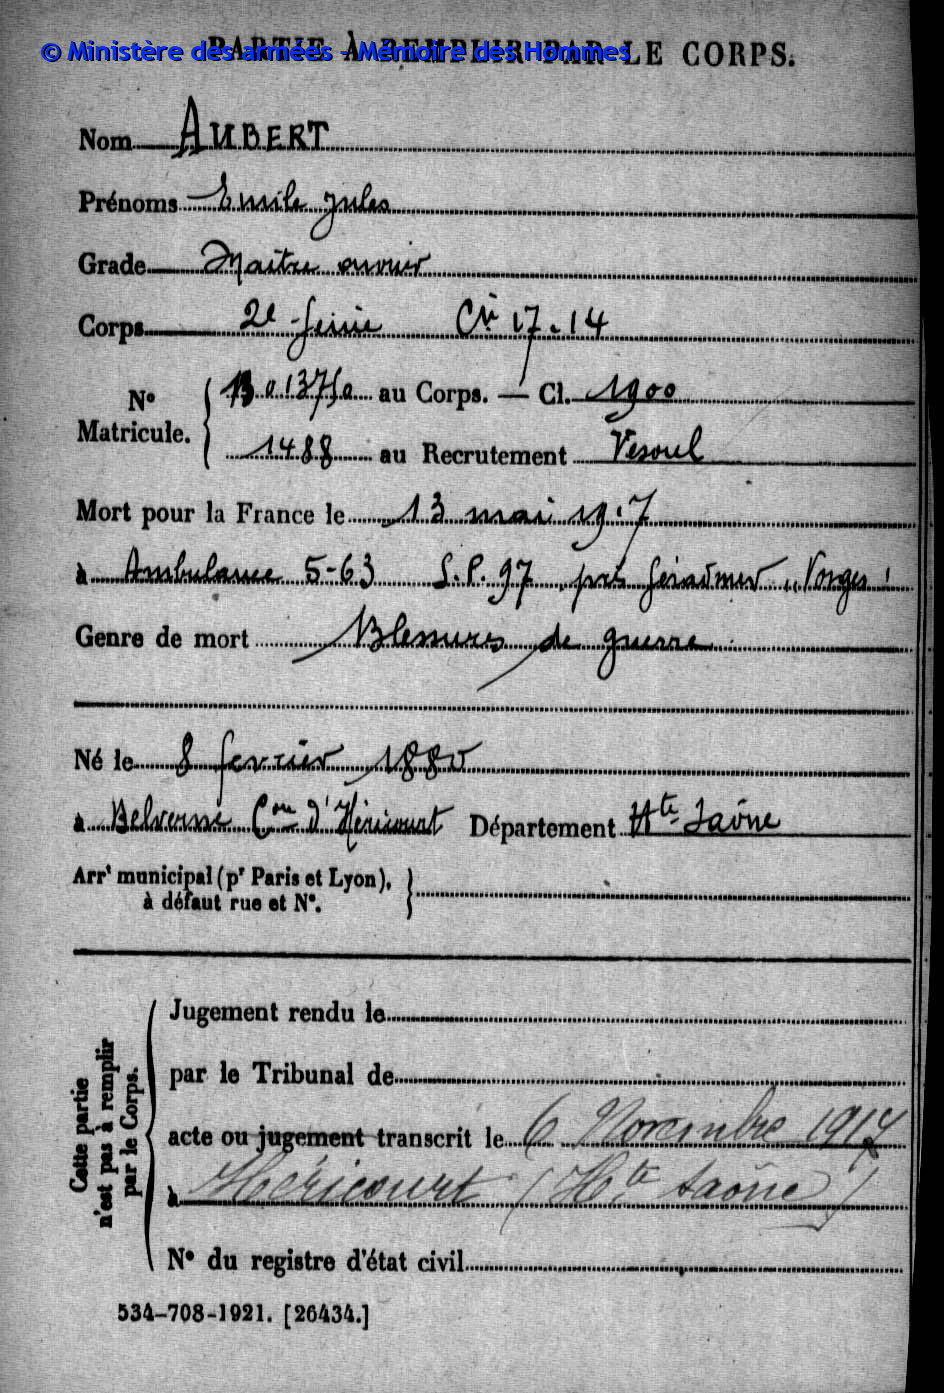 © Ministère des armées - Mémoire des Hommes
PARTIE À REMPLIR PAR LE CORPS.
Nom AUBERT
Prénoms Emile Jules
Grade Maitre ouvrier
Corps 2e Génie Cie 17.14
N° Matricule. 013750 au Corps. — Cl. 1900
1488 au Recrutement Vesoul
Mort pour la France le 13 mai 1917
à Ambulance 5-63 S.P. 97 près Gérardmer "Vosges"
Genre de mort Blessures de guerre
Né le 8 février 1880
à Belverne Con d'Héricourt Département Hte Saône
Arrt municipal (pr Paris et Lyon),
à défaut rue et N°.
Cette partie
n'est pas à remplir
par le Corps.
Jugement rendu le
par le Tribunal de
acte ou jugement transcrit le 6 Novembre 1917
à Héricourt (Hte Saône)
N° du registre d'état civil
534-708-1921. [26434.]